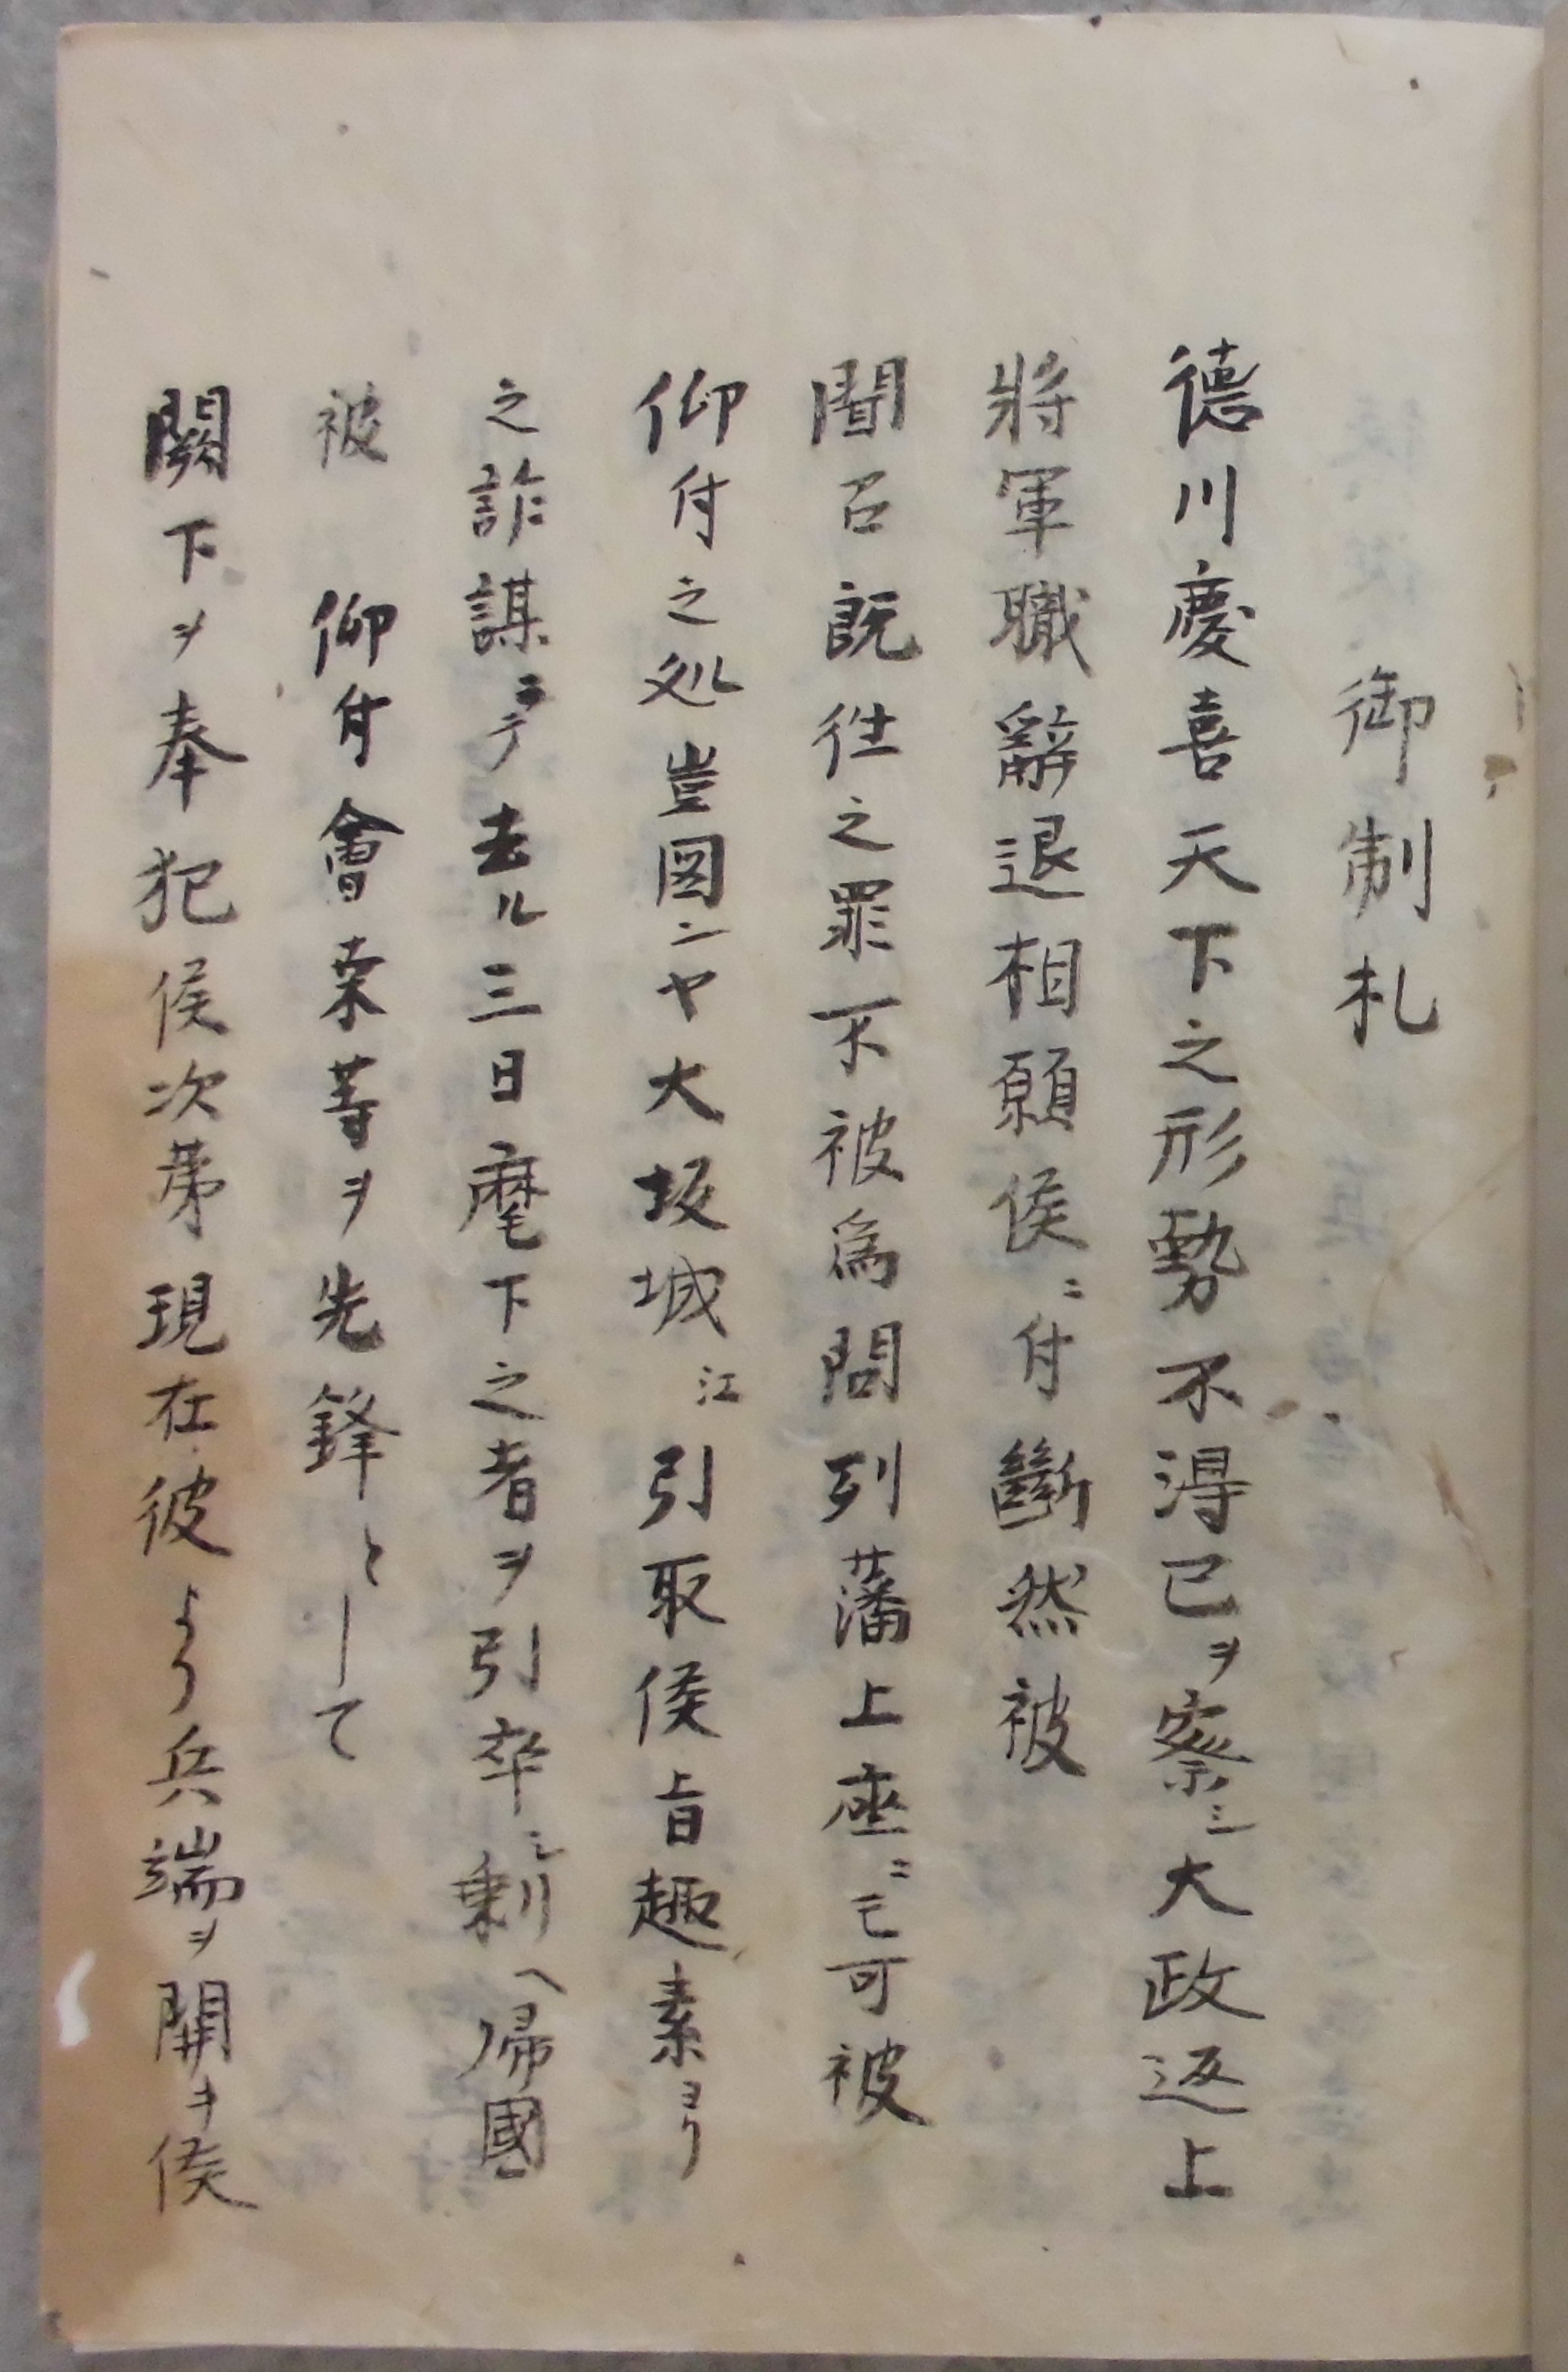 御制札
德川慶喜天下之形勢不得已ヲ察シ大政返上
將軍職辭退相願候ニ付斷然被
聞召既徃之罪不被爲問列藩上座ニモ可被
仰付之処豈図ンヤ大坂城江引取候旨趣素ヨリ
之詐謀ニテ去ル三日麾下之者ヲ引卒シ剰ヘ帰國
被　仰付會桒等ヲ先鋒として
闕下ヲ奉犯候次第現在彼より兵端ヲ開キ候